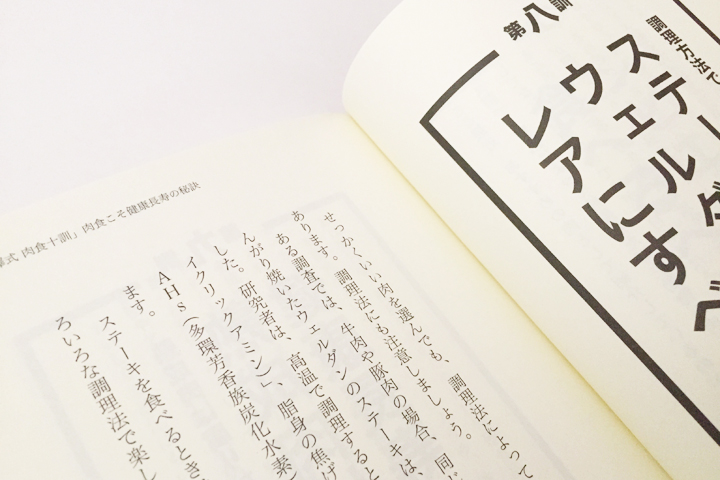 第八訓
調理方法で
ステーキ
ウェルダ
レアにすべ
式 肉食十訓」 肉食こそ健康長寿の秘訣
せっかくいい肉を選んでも、調理法によって
あります。調理法にも注意しましょう。
ある調査では、牛肉や豚肉の場合、同じ
んがり焼いたウェルダンのステーキは、
した。研究者は、高温で調理すると
イクリックアミン)」、脂身の焦げ
AHs(多環芳香族炭化水素)
ます。
ステーキを食べるとき、
ろいろな調理法で楽し